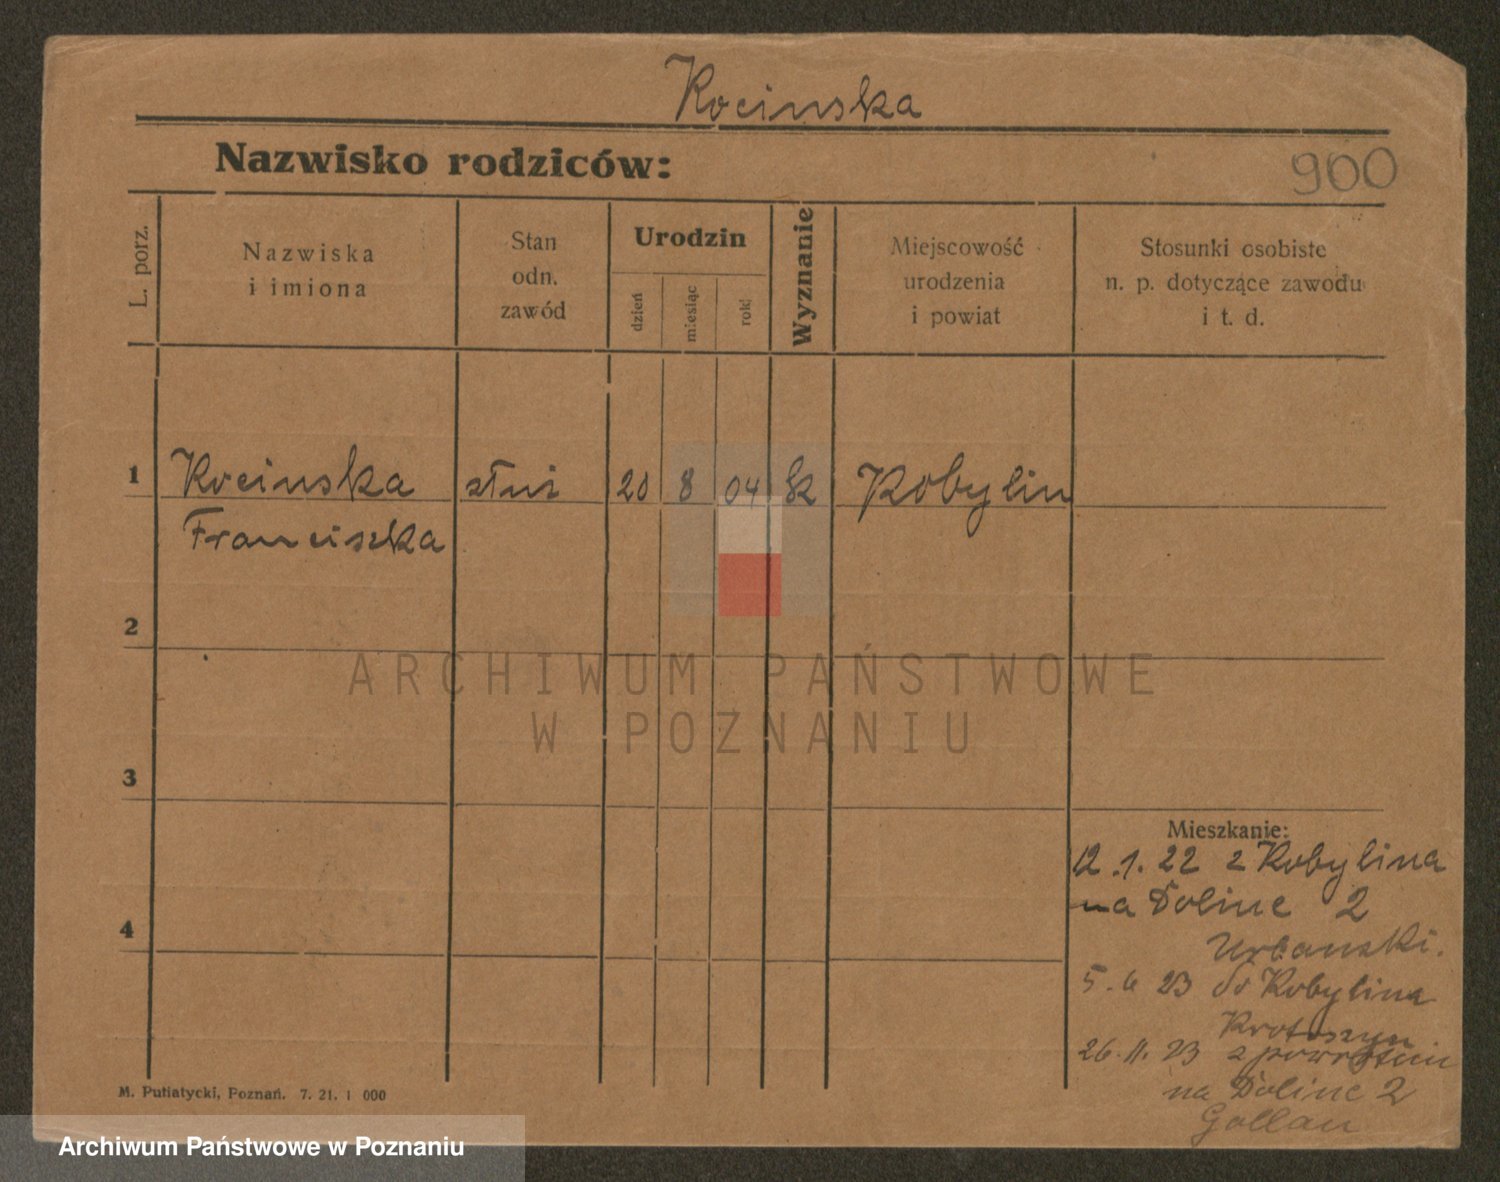 Kocinska
Nazwisko rodziców:
900
L. porz.
Nazwiska
i imiona
Stan
odn.
zawód
Urodzin
dzień
miesiąc
rok
Wyznanie
Miejscowość
urodzenia
i powiat
Stosunki osobiste
n. p. dotyczące zawodu
i t. d.
1
Kocinska
20
8
04
Kobylin
Franciszka
2
3
4
ARCHIWUM PAŃSTWOWE
W POZNANIU
Mieszkanie:
12.1.22 z Kobylina
na Doline 2
Urbanski.
5.6 23 do Kobylina
Krotoszyn
26.11.23 z powrotem
na Doline 2
Gollau
M. Putiatycki, Poznań. 7. 21. 1 000
Archiwum Państwowe w Poznaniu